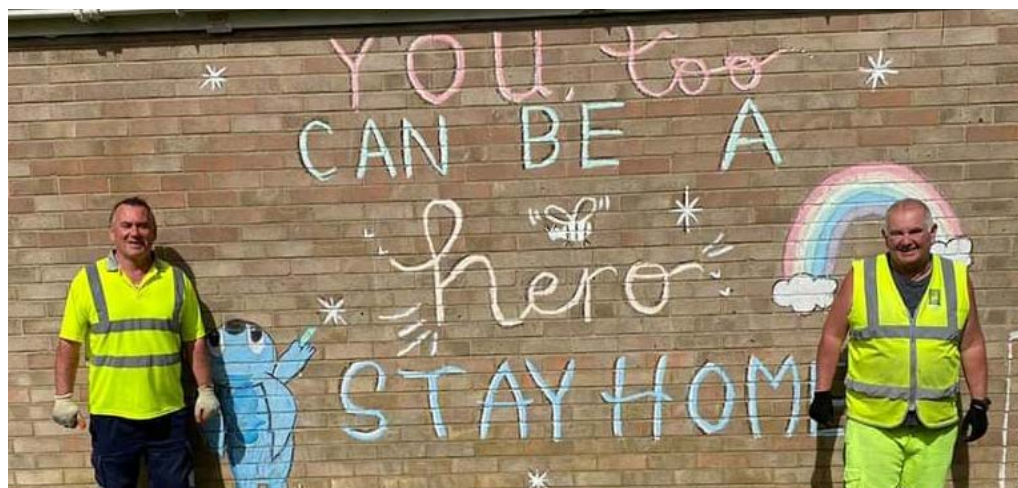 YOU, too
CAN BE A
hero
STAY HOME